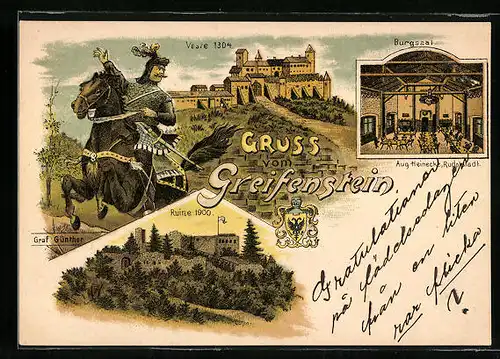 Veste 1304.
Burgsaal
GRUSS
vom
Greifenstein.
Aug. Heinecke, Rudolstadt.
Graf Günther
Ruine 1900.
Gratulationer
på födelsedagen
från en liten
rar flicka
?